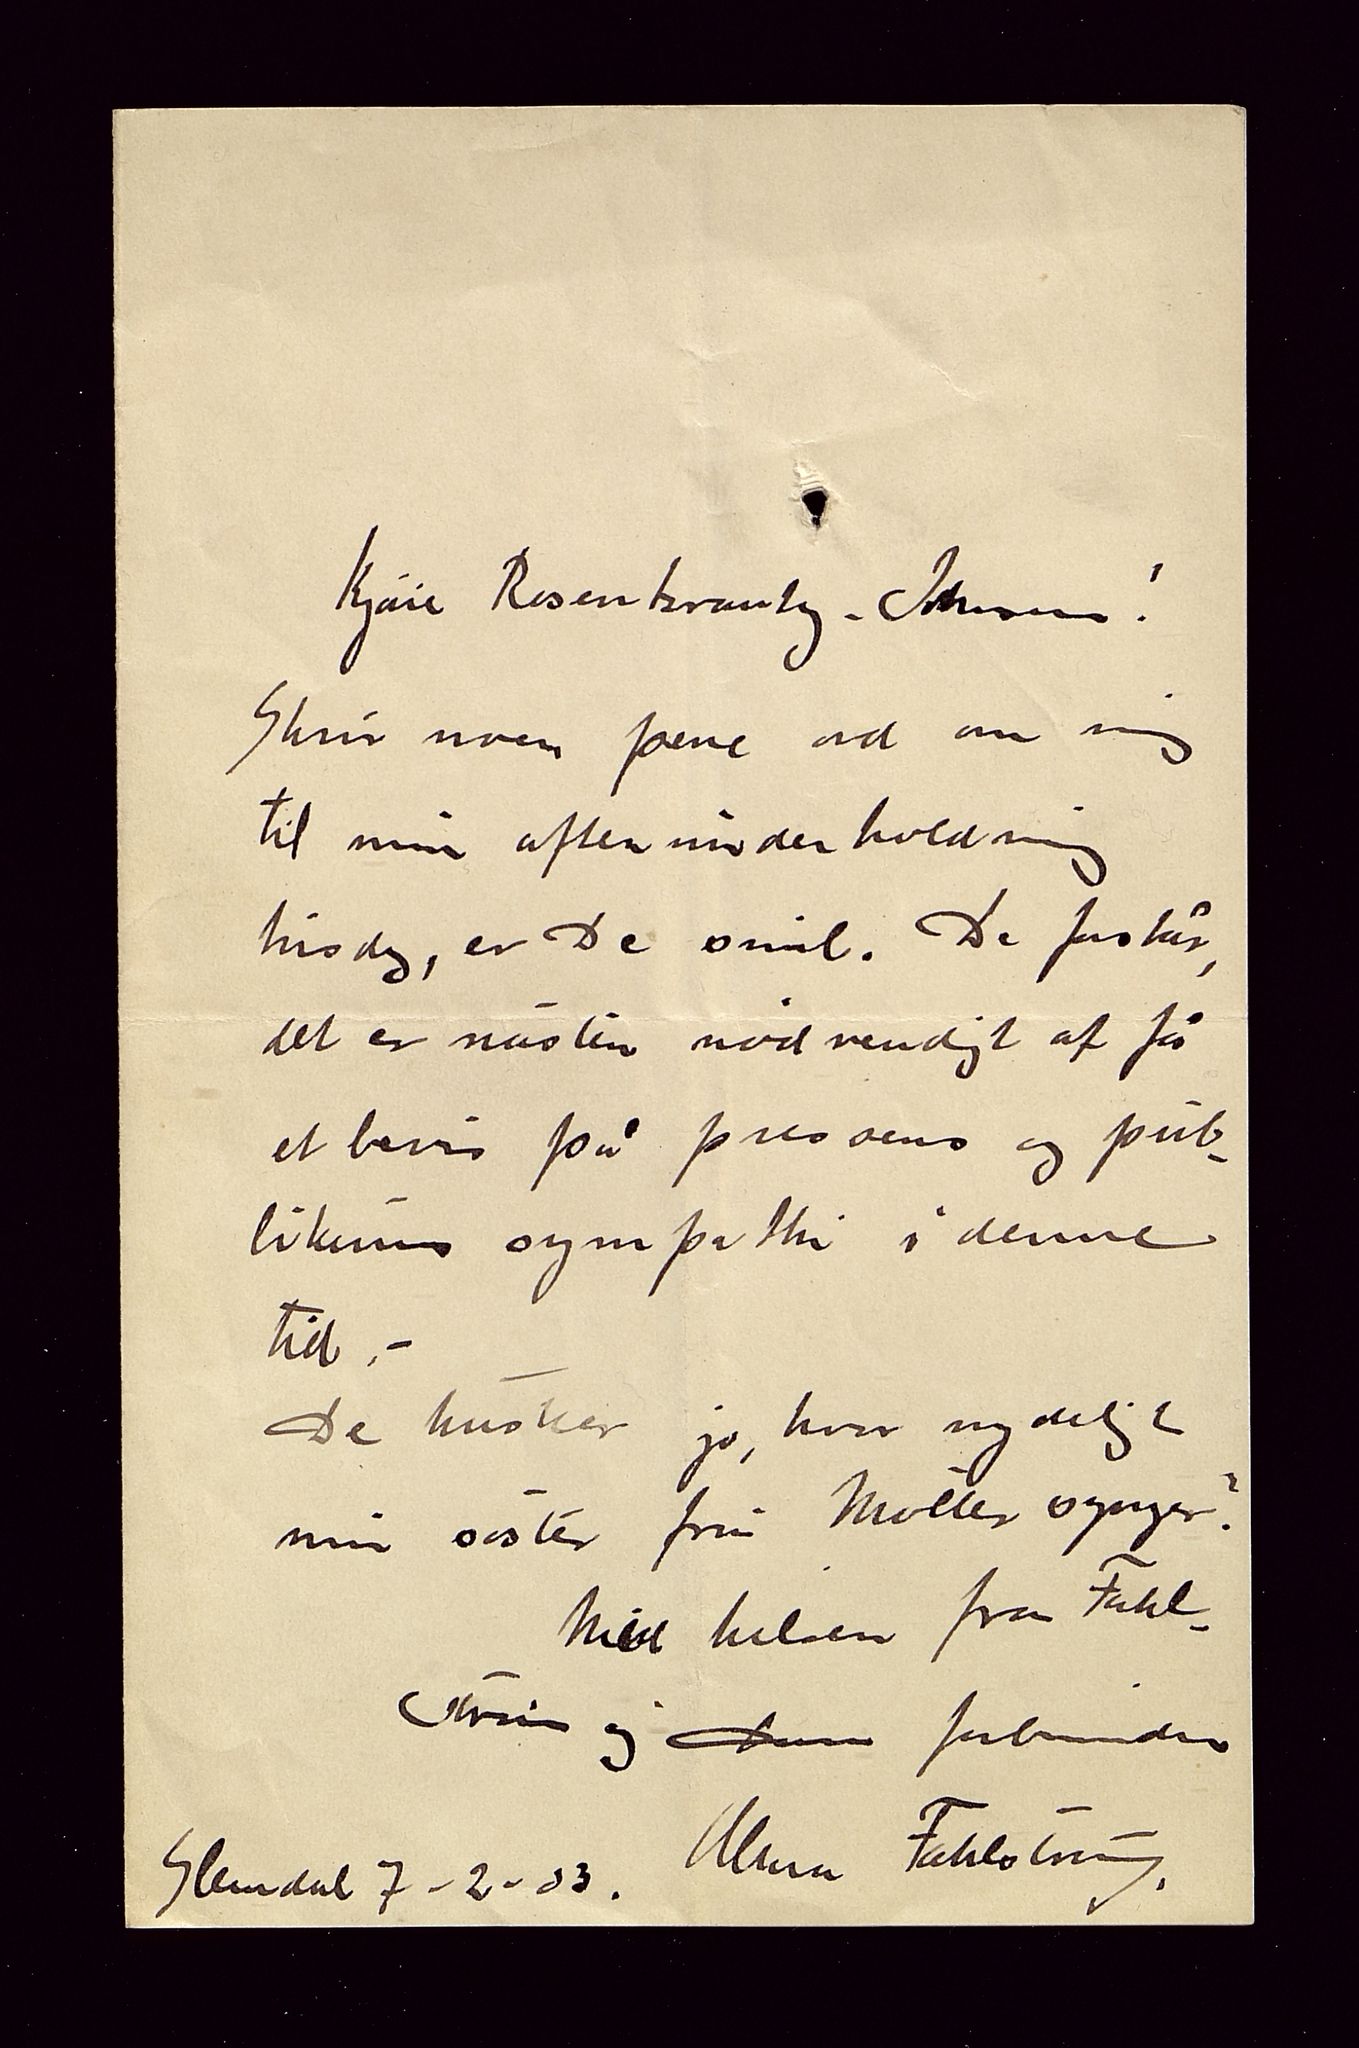 Kjäre Rosenkrantz-Johnsen!
Skriv noen pene ord om mig
til min aftenunderholdning
tirsdag, er De snil. De forstår,
det er nästen nödvendigt at få
et bevis på pressens og pub-
likums sympathi i denne
tid.-
De husker jo, hvor nydeligt
min söster fru Möller synger?
Med hilsen fra Fahl-
ström og Deres forbundne
Alma Fahlström.
Slemdal 7-2-03.